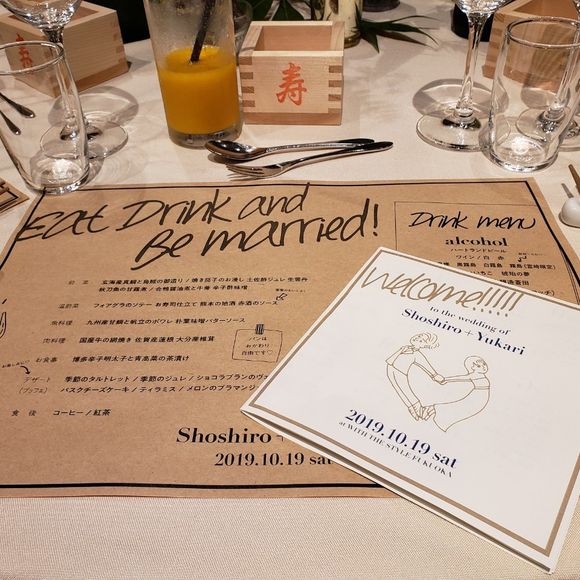 寿
Eat Drink and
Be married!
前菜 玄海産真鯛と烏賊の御造り / 焼き茄子のお浸し 土佐酢ジュレ 生雲丹
秋刀魚の甘露煮 / 合鴨醤油煮と牛蒡 辛子酢味噌
温前菜 フォアグラのソテー お寿司仕立て 熊本の地酒 赤酒のソース
魚料理 九州産甘鯛と帆立のポワレ 朴葉味噌バターソース
肉料理 国産牛の網焼き 佐賀産蓮根 大分産椎茸
パンは
おかわり
自由です♡
お食事 博多辛子明太子と青高菜の茶漬け
デザート 季節のタルトレット / 季節のジュレ / ショコラブランのヴ
(ブッフェ) バスクチーズケーキ / ティラミス / メロンのブラマンジ
食後 コーヒー / 紅茶
Shoshiro +
2019.10.19 sat
Drink menu
alcohol
ハートランドビール
ワイン / 白 赤
黒霧島 白霧島 霧島(宮崎限定)
いちこ 琥珀の夢
Welcome!!!!!
to the wedding of
Shoshiro + Yukari
2019.10.19 sat
at WITH THE STYLE FUKUOKA